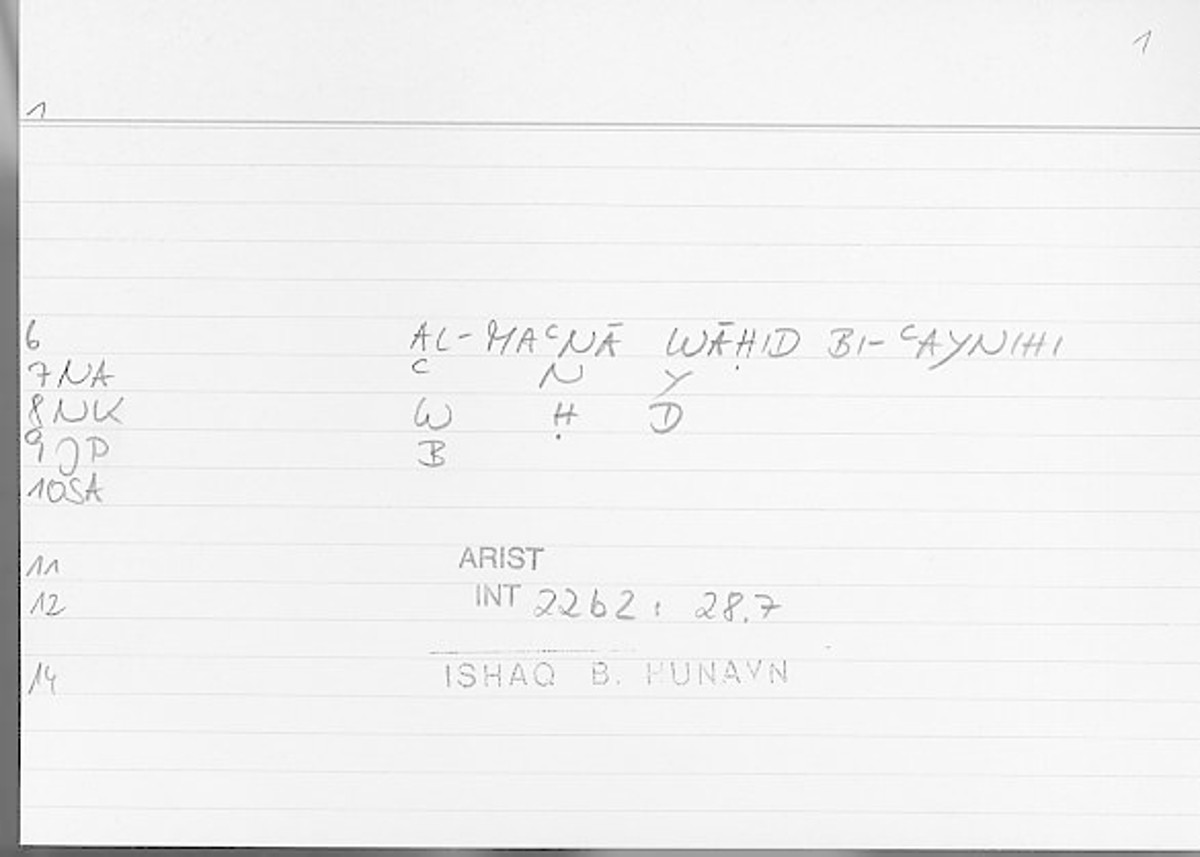 1
1
6 AL-MAᶜNĀ WĀḤID BI-ᶜAYNIHI
7 NA C N Y
8 NK W Ḥ D
9 JP B
10SA
11 ARIST
12 INT 22b2 : 28.7
14 ISHAQ B. HUNAYN